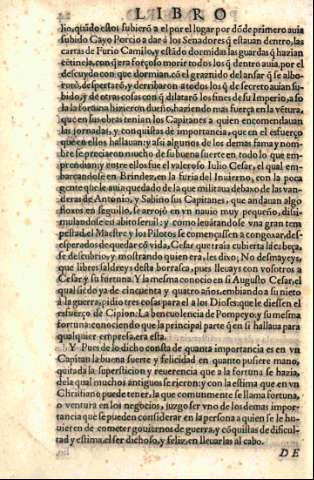 LIBRO
lio, quãdo estos subierõ a el por el lugar por dõde primero auia
subido Gayo Porcio a dar á los Senadores q̃ estauan dentro, las
cartas de Furio Camilo, y estãdo dormidan las guardas q̃ hazian
cētinela, con q̃ era forçoso morir todos los q̃ dentro auia, por el
descuydo con que dormian, cō el graznido del ansar q̃ se albo-
rotó, despertarō, y derribaron a todos los q̃ de secreto auian su-
bido, y de otras cosas con q̃ dilatarō los fines de su Imperio, a so
la la fortuna hizieron dueño, haziendo mas fuerça en la vẽtura,
que en sus obras tenian los Capitanes a quien encomendauan
las jornadas, y conquistas de importancia, que en el esfuerço
que en ellos hallauan: y assi algunos de los de mas fama y nom-
bre se preciaron mucho de su buena suerte en todo lo que em-
prendian, y entre ellos fue el valeroso Iulio Cesar, el qual em-
barcandose en Brindez, en la furia del Inuierno, con la poca
gente que le auia quedado de la que militaua debaxo de las van-
deras de Antonio, y Sabino sus Capitanes, que andauan algo
floxos en seguillo, se arrojò en vn nauio muy pequeño, dissi-
mulandose en abito seruil: y como leuãtandose vna gran tem
pestad, el Maestre y los Pilotos se començassen a congoxar des-
esperados de quedar cō vida, Cesar que traia cubierta la cabeça,
se descubrio, y mostrando quien era, les dixo; No desmayeys,
que libres saldreys desta borrasca, pues lleuays con vosotros a
Cesar y su fortuna. Y la mesma conocio en si Augusto Cesar, el
qual siēdo ya de cincuenta y quatro años, embiando a su nieto
á la guerra, pidio tres cosas para el a los Dioses: que le diessen el
esfuerço de Cipion: La beneuolencia de Pompeyo: y su mesma
fortuna: conociendo que la principal parte q̃ en si hallaua para
qualquier empresa, era esta.
Y Pues de lo dicho consta de quanta importancia es en vn
Capitan la buena suerte y felicidad en quanto pusiere mano,
quitada la supersticion y reuerencia que a la fortuna se hazia,
de la qual muchos antiguos se rieron: y con la estima que en vn
Christiano puede tener, la que comunmente se llama fortuna,
o ventura en los negocios, juzgo ser vno de los demas impor-
tancia que se pueden considerar en la persona a quien se le hu-
uieren de cometer gouiernos de guerra, y cōquistas de dificul-
tad y estima, el ser dichoso, y feliz, en lleuarlas al cabo.
DE